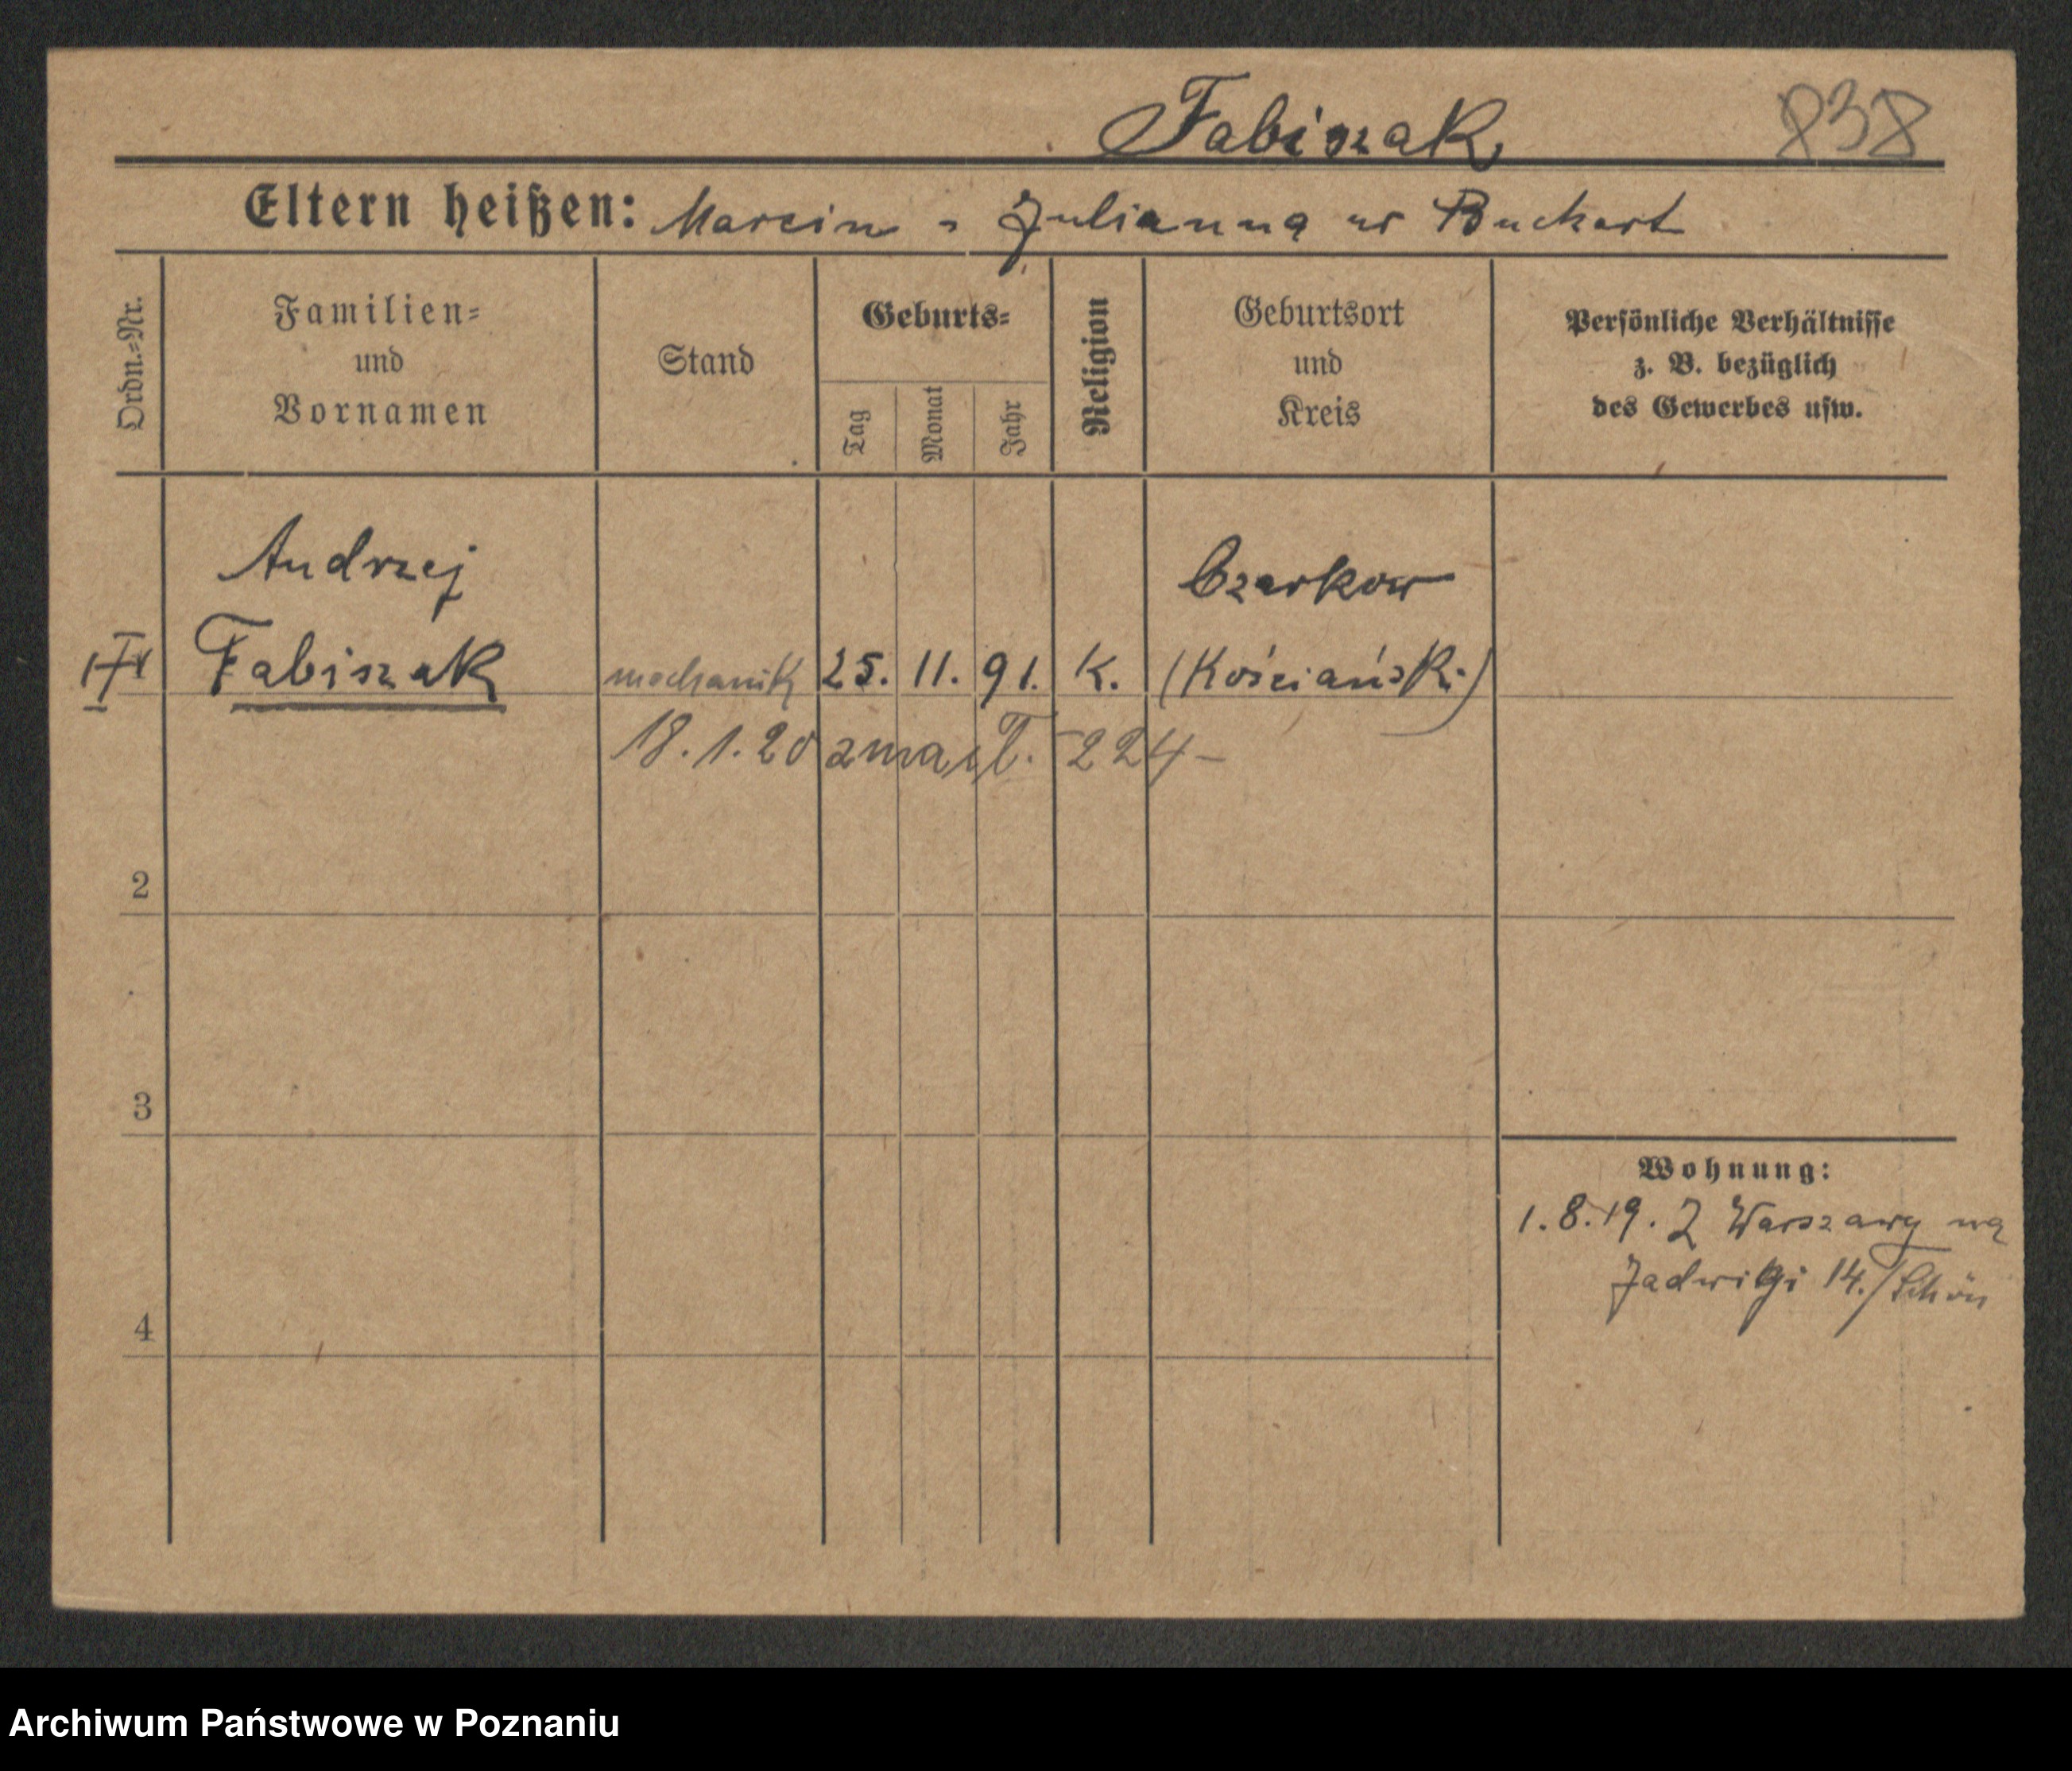 Fabiszak 838
Eltern heißen: Marcin - Julianna ur Buckart
Ordn.=Nr.
Familien=
und
Vornamen
Stand
Geburts=
Tag
Monat
Jahr
Religion
Geburtsort
und
Kreis
Persönliche Verhältnisse
z. B. bezüglich
des Gewerbes usw.
Andrzej
Fabiszak
mechanik
25. 11. 91.
K.
Czarkow
(Kościański)
18.1.20 zmarł. -224-
2
3
4
Wohnung:
1.8.19. Z Warszawy na
Jadwigi 14./Schön
Archiwum Państwowe w Poznaniu